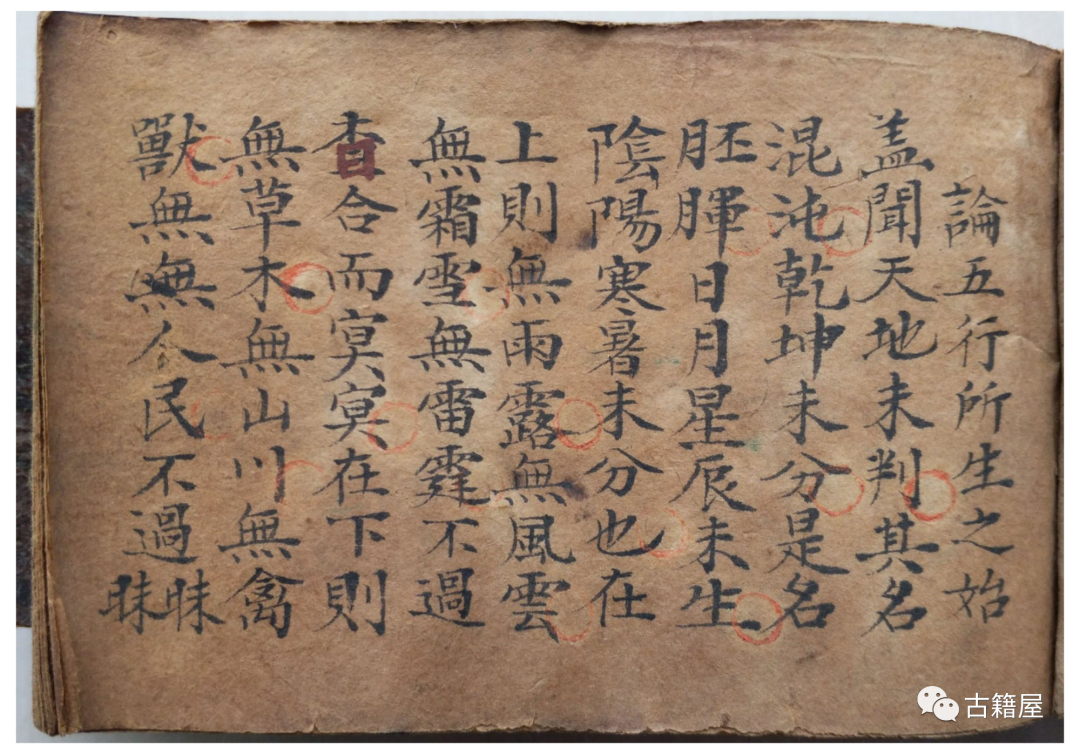 論五行所生之始
盖聞天地未判其名
混沌乾坤未分是名
胚暉日月星辰未生
陰陽寒暑未分也在
上則無雨露無風雲
無霜雪無雷霆不過
杳合而冥冥在下則
無草木無山川無禽
獸無無人民不過昧昧
古籍屋